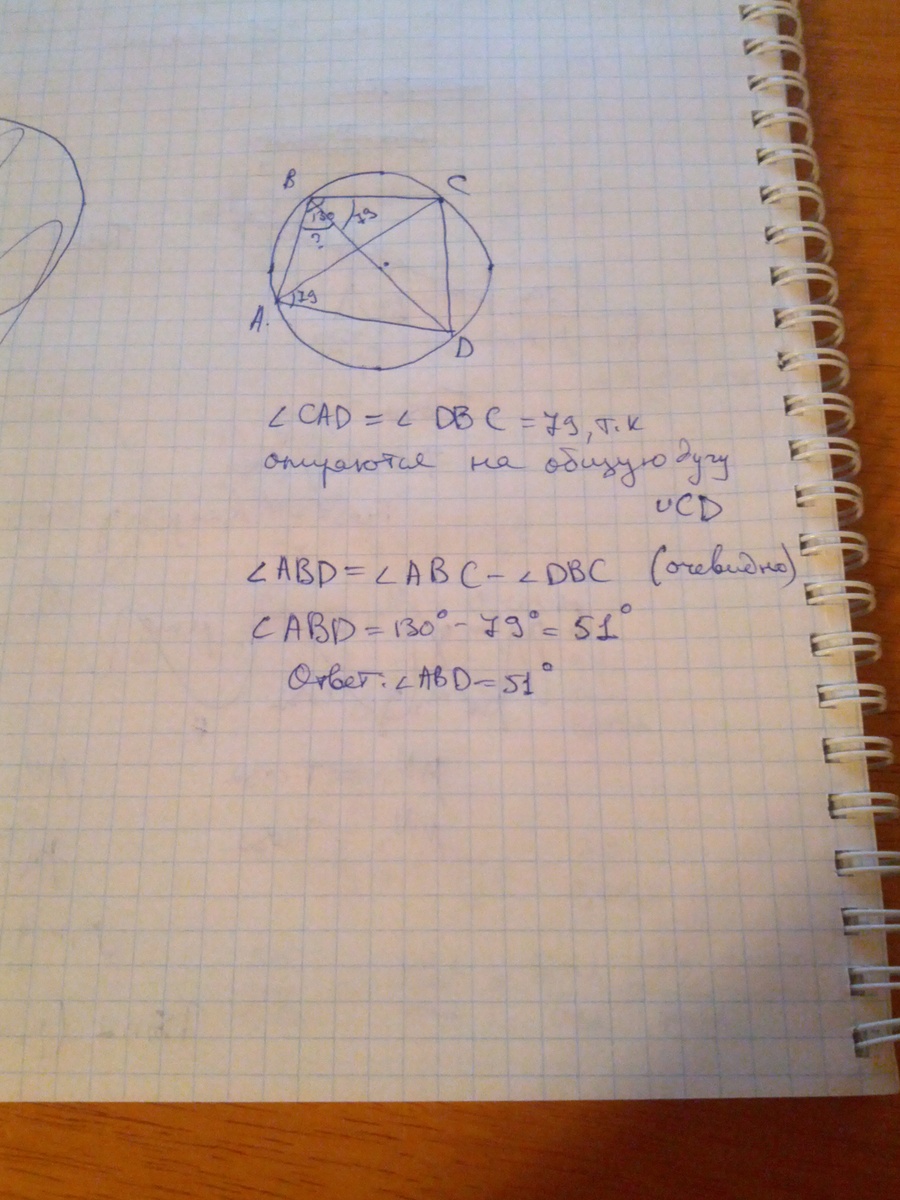 B
C
130
79
?
A.
79
D
∠CAD = ∠DBC = 79, т.к
опираются на общую дугу
∪CD
∠ABD = ∠ABC - ∠DBC (очевидно)
∠ABD = 130° - 79° = 51°
Ответ: ∠ABD = 51°